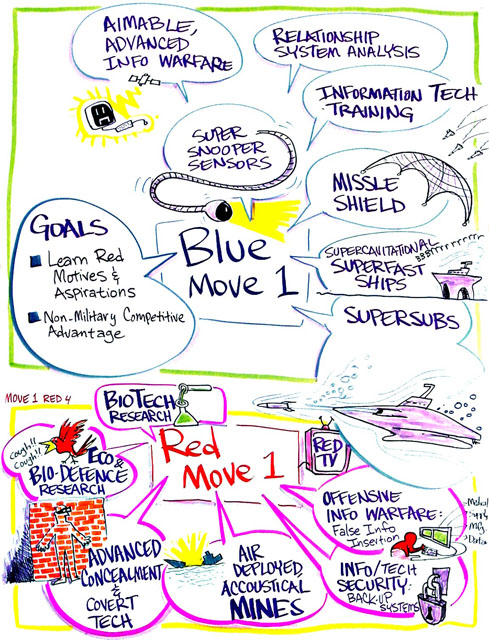 AIMABLE,
ADVANCED
INFO WARFARE
RELATIONSHIP
SYSTEM ANALYSIS
INFORMATION TECH
TRAINING
SUPER
SNOOPER
SENSORS
MISSLE
SHIELD
GOALS
Learn Red
Motives &
Aspirations
Non-Military Competitive
Advantage
Blue
Move 1
SUPERCAVITATIONAL
SUPERFAST
SHIPS
SUPERSUBS
MOVE 1 RED 4
BIOTECH
RESEARCH
Red
Move 1
RED
TV
Cough!!
Cough!!
ECO &
BIO-DEFENCE
RESEARCH
OFFENSIVE
INFO WARFARE:
False Info
Insertion
Medical
Supply
Mfg
ADVANCED
CONCEALMENT
&
COVERT
TECH
AIR
DEPLOYED
ACCOUSTICAL
MINES
INFO/TECH
SECURITY:
BACK-UP
SYSTEMS